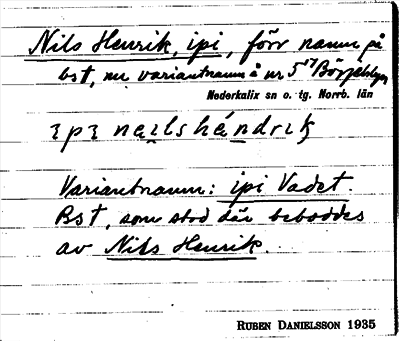 Nils Henrik, ipi, förr namn på
bst, nu variantnamn å nr 5¹⁷ Börjelsbyn
Nederkalix sn o. tg. Norrb. län
Variantnamn: ipi Vadet.
Bst, som stod där beboddes
av Nils Henrik.
RUBEN DANIELSSON 1935